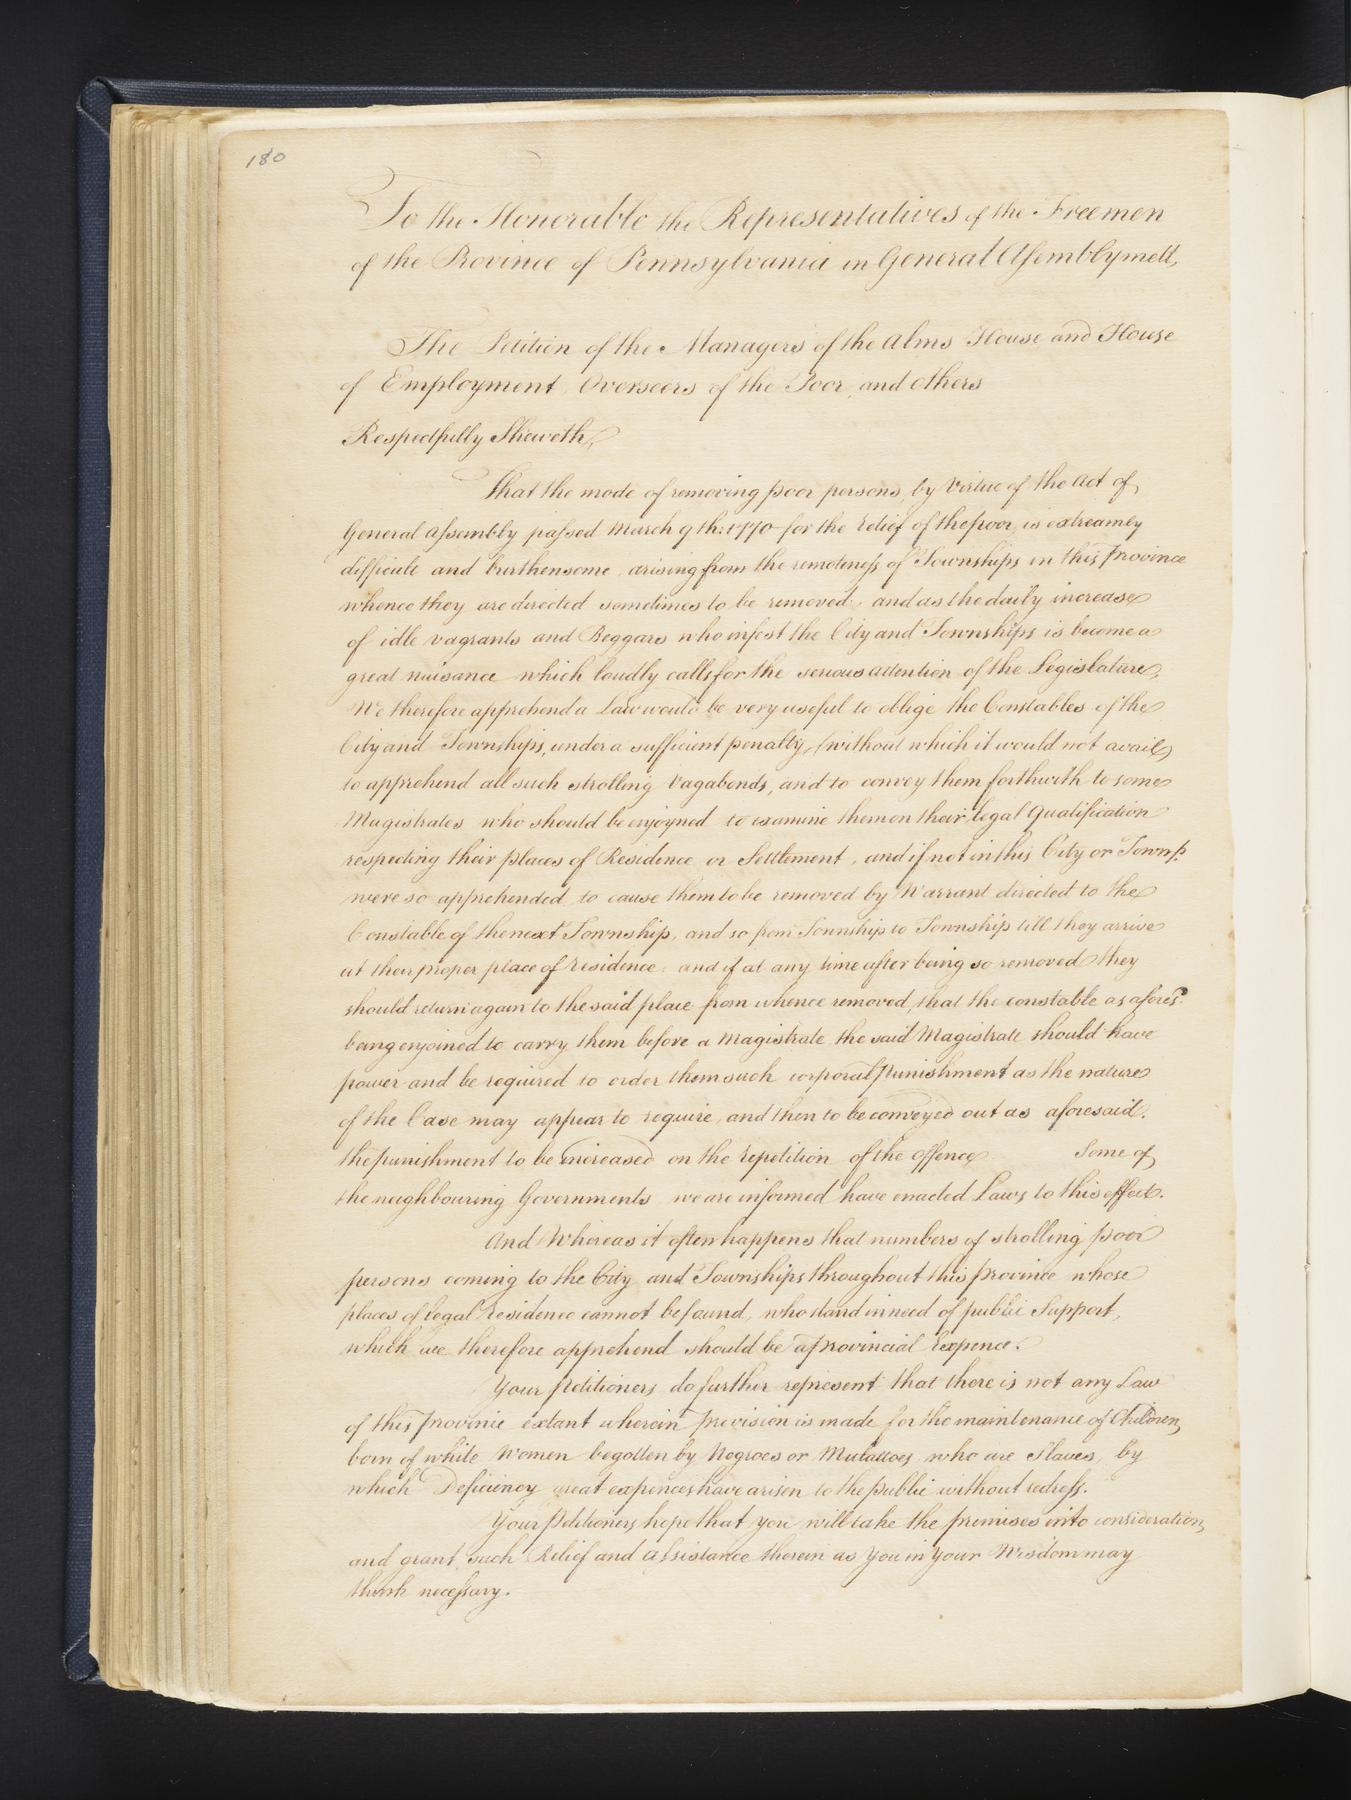 180
To the Honorable the Representatives of the Freemen
of the Province of Pennsylvania in General Assembly mett,
The Petition of the Managers of the Alms House and House
of Employment, Overseers of the Poor, and others
Respectfully Sheweth,
That the mode of removing poor persons, by Virtue of the Act of
General Assembly passed March 9th: 1770 for the relief of the poor, is extreamly
difficult and burthensome, arising from the remoteness of Townships in this Province
whence they are directed sometimes to be removed, and as the daily increase
of idle vagrants and Beggars who infest the City and Townships is become a
great nuisance which loudly calls for the serious attention of the Legislature,
We therefore apprehend a Law would be very useful to oblige the Constables of the
City and Townships, under a sufficient penalty, (without which it would not avail)
to apprehend all such strolling Vagabonds, and to convey them forthwith to some
Magistrates who should be enjoyned to examine them on their legal Qualification
respecting their places of Residence or Settlement, and if not in this City or Townp.
were so apprehended to cause them to be removed by Warrant directed to the
Constable of the next Township, and so from Township to Township till they arrive
at their proper place of residence: and if at any time after being so removed they
should return again to the said place from whence removed, that the constable as afores.d
being enjoined to carry them before a Magistrate, the said Magistrate should have
power and be required to order them such corporal punishment as the nature
of the Case may appear to require, and then to be conveyed out as aforesaid.
the punishment to be increased on the repetition of the offence Some of
the neighbouring Governments we are informed have enacted Laws to this effect.
And Whereas it often happens that numbers of strolling poor
persons coming to the City and Townships throughout this province whose
places of legal residence cannot be found, who stand in need of public Support,
which we therefore apprehend should be a Provincial Expence.
Your Petitioners do further represent that there is not any Law
of this province extant wherein provision is made for the maintenance of Children,
born of white Women begotten by Negroes or Mulattoes, who are Slaves, by
which Deficiency great expences have arisen to the public without redress.
Your Petitioners hope that you will take the premises into consideration,
and grant such Relief and assistance therein as you in your Wisdom may
think necessary.